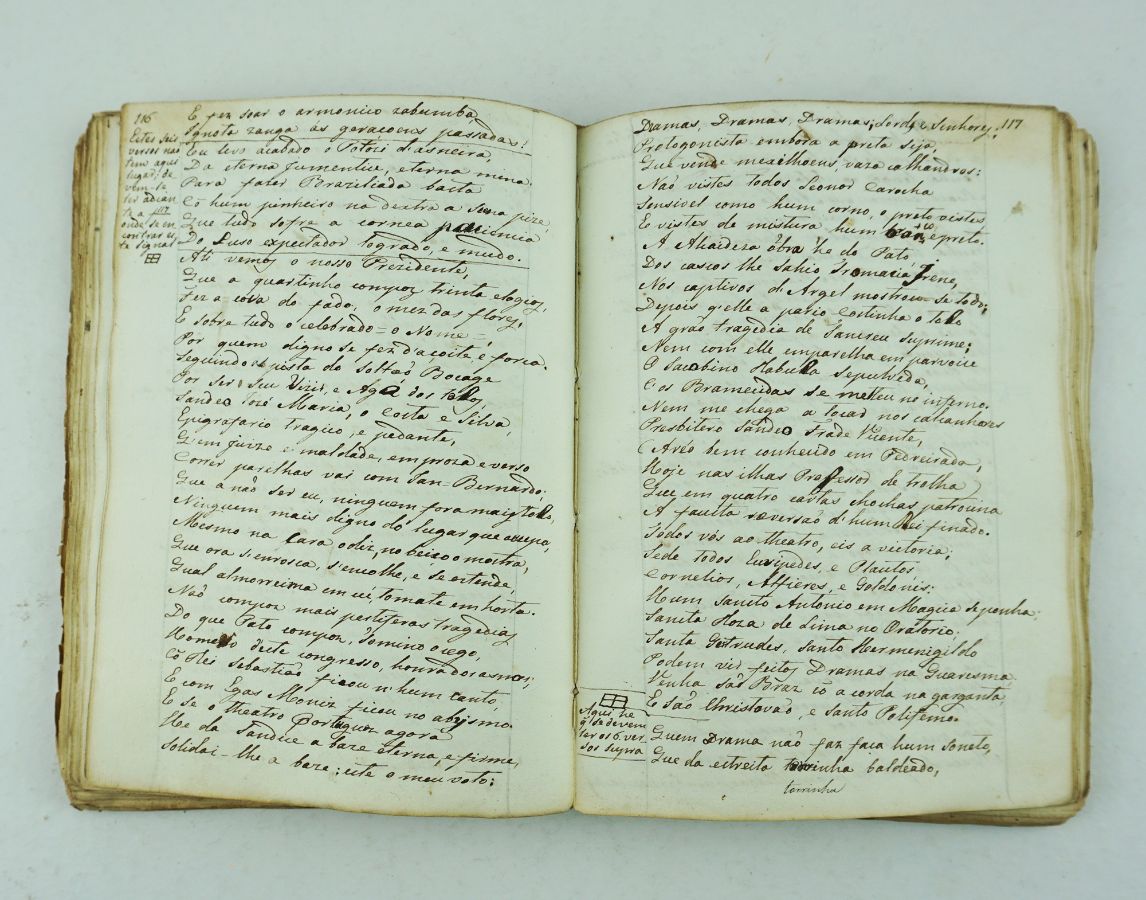 116
E fez soar o armonico zabumba,
Ignota zanga às geracoens passadas!
Eu levo acabado o Potosi d'asneira,
Da eterna Jumentice, eterna mina.
Para fazer Braziliada basta
Cõ hum pinheiro na dextra a scena pize,
Que tudo sofre a cornea paciencia
Do Luso expectador logrado, e mudo.
Estes seis
versos não
tem aqui
lugar; de
vem-se
ler adian
te a 117
onde se en
contrar es
te signal
Ali vemos o nosso Prezidente,
Que a quartinho compoz trinta elogios,
Fez a cova do fado, o mez das flores,
E sobre tudo o celebrado = o Nome =,
Por quem digno se fez d'acoite, e forca.
Seguindo a pista do Soltaõ Bocage
Por ser o seu Vizir, e Agá dos tolos,
Sandeo José Maria, o Costa e Silva,
Epigrafario tragico, e pedante,
Q'em juizo e maldade, em proza e verso
Correr parelhas vai com San-Bernardo;
Que a não ser eu, ninguem fora mais tolo,
Ninguem mais digno do lugar que occupo,
Mesmo na cara o diz, no beiço o mostra,
Que ora s'enrosca, s'encolhe, e se estende,
Qual almorreima em cú, tomate em horta.
Naõ compoz mais pestiferas tragedias
Do que Pato compoz, Domino o cego,
Homero deste congresso, honrador asnos;
Cõ Rei Sebastiaõ ficou n'hum canto,
E com Egas Moniz ficou no abysmo.
E se o theatro Portuguez agora
He da Sandice a baze eterna, e firme,
Solidai-lhe a baze; este o meu voto:
117
Dramas, Dramas, Dramas; Lords e Senhores;
Protogonista embora a preta seja,
Que vende mexilhoens, vaza calhandros:
Naõ vistes todos Leonor Carocha
Sensivel como hum corno, o preto vistes
E vistes de mistura hum branco e preto.
A Alcaideza obra he do Pato,
Dos cascos lhe sahio Tromacia Irene,
Nos captivos d'Argel mostrou-se todo;
Depois q'elle a pario Coitinho o tolo
A grão tragedia de Tancreu supreme;
Nem com elle emparelha em parvoice
O Jacobino Habulla Sepulveda,
Cos Bramcudas se meteu no inferno.
Nem me chega a tocar nos calcanhares
Presbitero Sandeo Frade Vicente,
(Areó bem conhecido em Pedreirada,
Hoje nas ilhas Professor de trolha)
Que em quatro cartas chochas patrocina
A fausta reversaõ d'hum Rei finado.
Todos vós ao theatro, eis a victoria;
Sede todos Euripedes, e Plautos
Cornelios, Alfieres, e Goldonis:
Hum Santo Antonio em Magica se ponha:
Santa Roza de Lima no Oratorio;
Santa Getrudes, Santo Hermenigildo
Podem vir feitos Dramas na Quaresma
Venha são Braz có a corda na garganta,
E Saõ Christovão, e Santo Polifemo.
Aqui he
q' se devem
ler os 6 ver
sos supra
Quem Drama não faz faça hum soneto,
Que da estreita torrinha baldeado,
torrinha